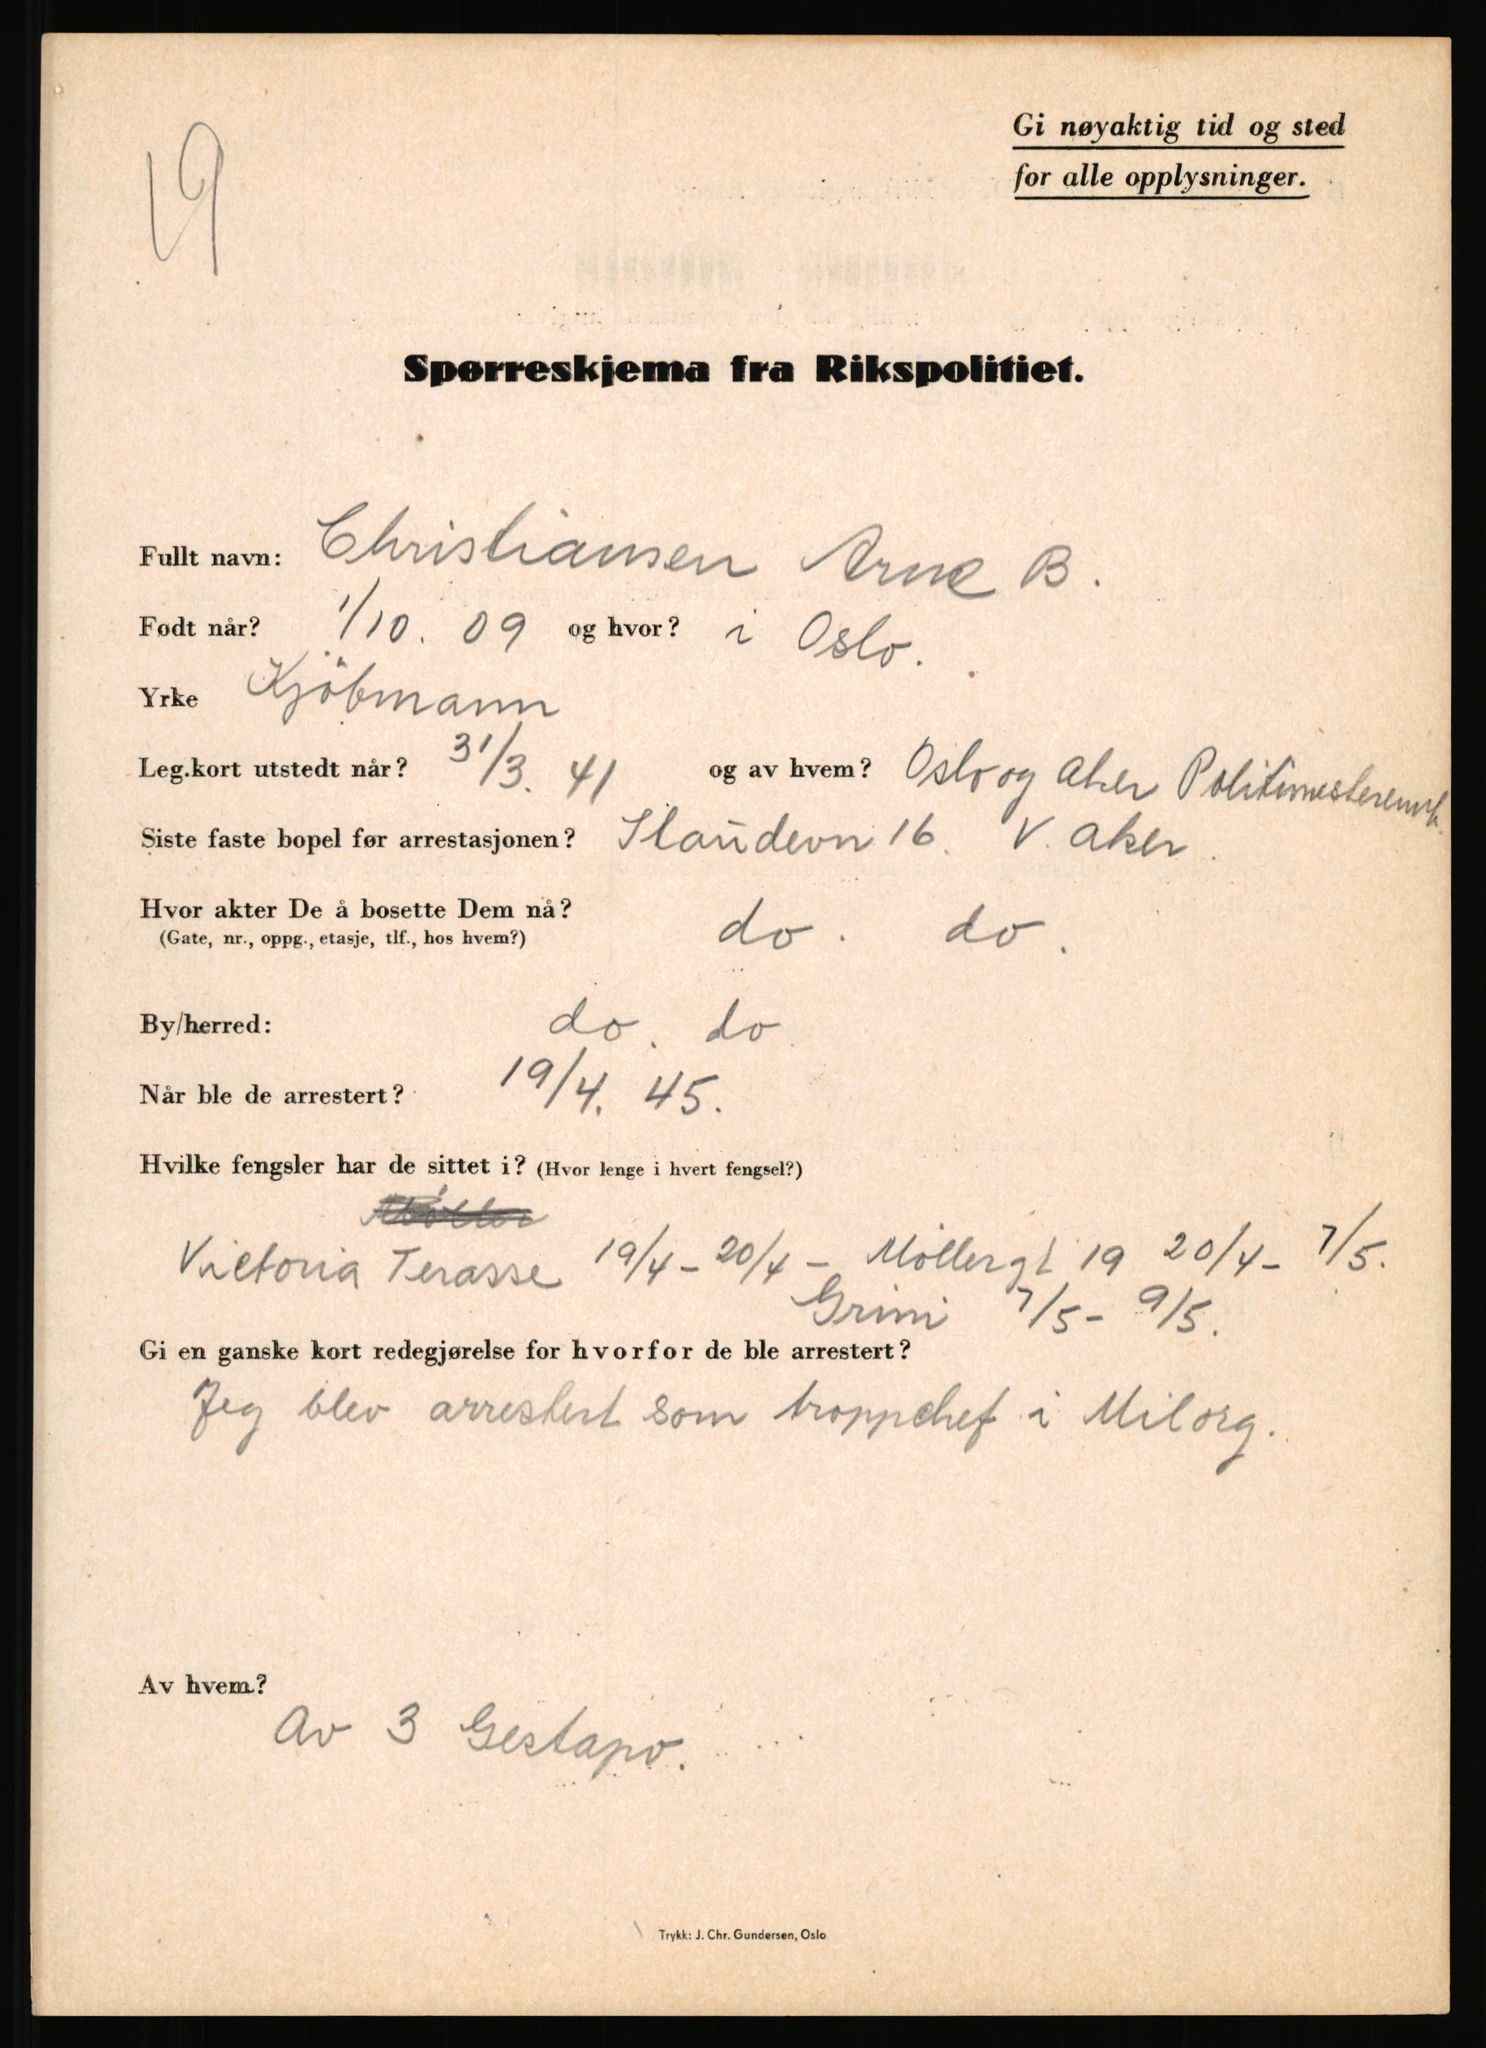 19
Gi nøyaktig tid og sted
for alle opplysninger.
Spørreskjema fra Rikspolitiet.
Fullt navn: Christiansen Arne B.
Født når? 1/10. 09 og hvor? i Oslo.
Yrke Kjöbmann
Leg.kort utstedt når? 31/3. 41 og av hvem? Oslo og Aker
Siste faste bopel før arrestasjonen? 16. V. Aker.
Hvor akter De å bosette Dem nå? do. do.
(Gate, nr., oppg., etasje, tlf., hos hvem?)
By/herred: do. do
Når ble de arrestert? 19/4. 45.
Hvilke fengsler har de sittet i? (Hvor lenge i hvert fengsel?)
Victoria Terasse 19/4 - 20/4 - Möllergt 19 20/4 - 7/5.
Grini 7/5 - 9/5.
Gi en ganske kort redegjørelse for hvorfor de ble arrestert?
Jeg blev arrestert som troppchef i Milorg.
Av hvem?
Av 3 Gestapo.
Trykk: J. Chr. Gundersen, Oslo